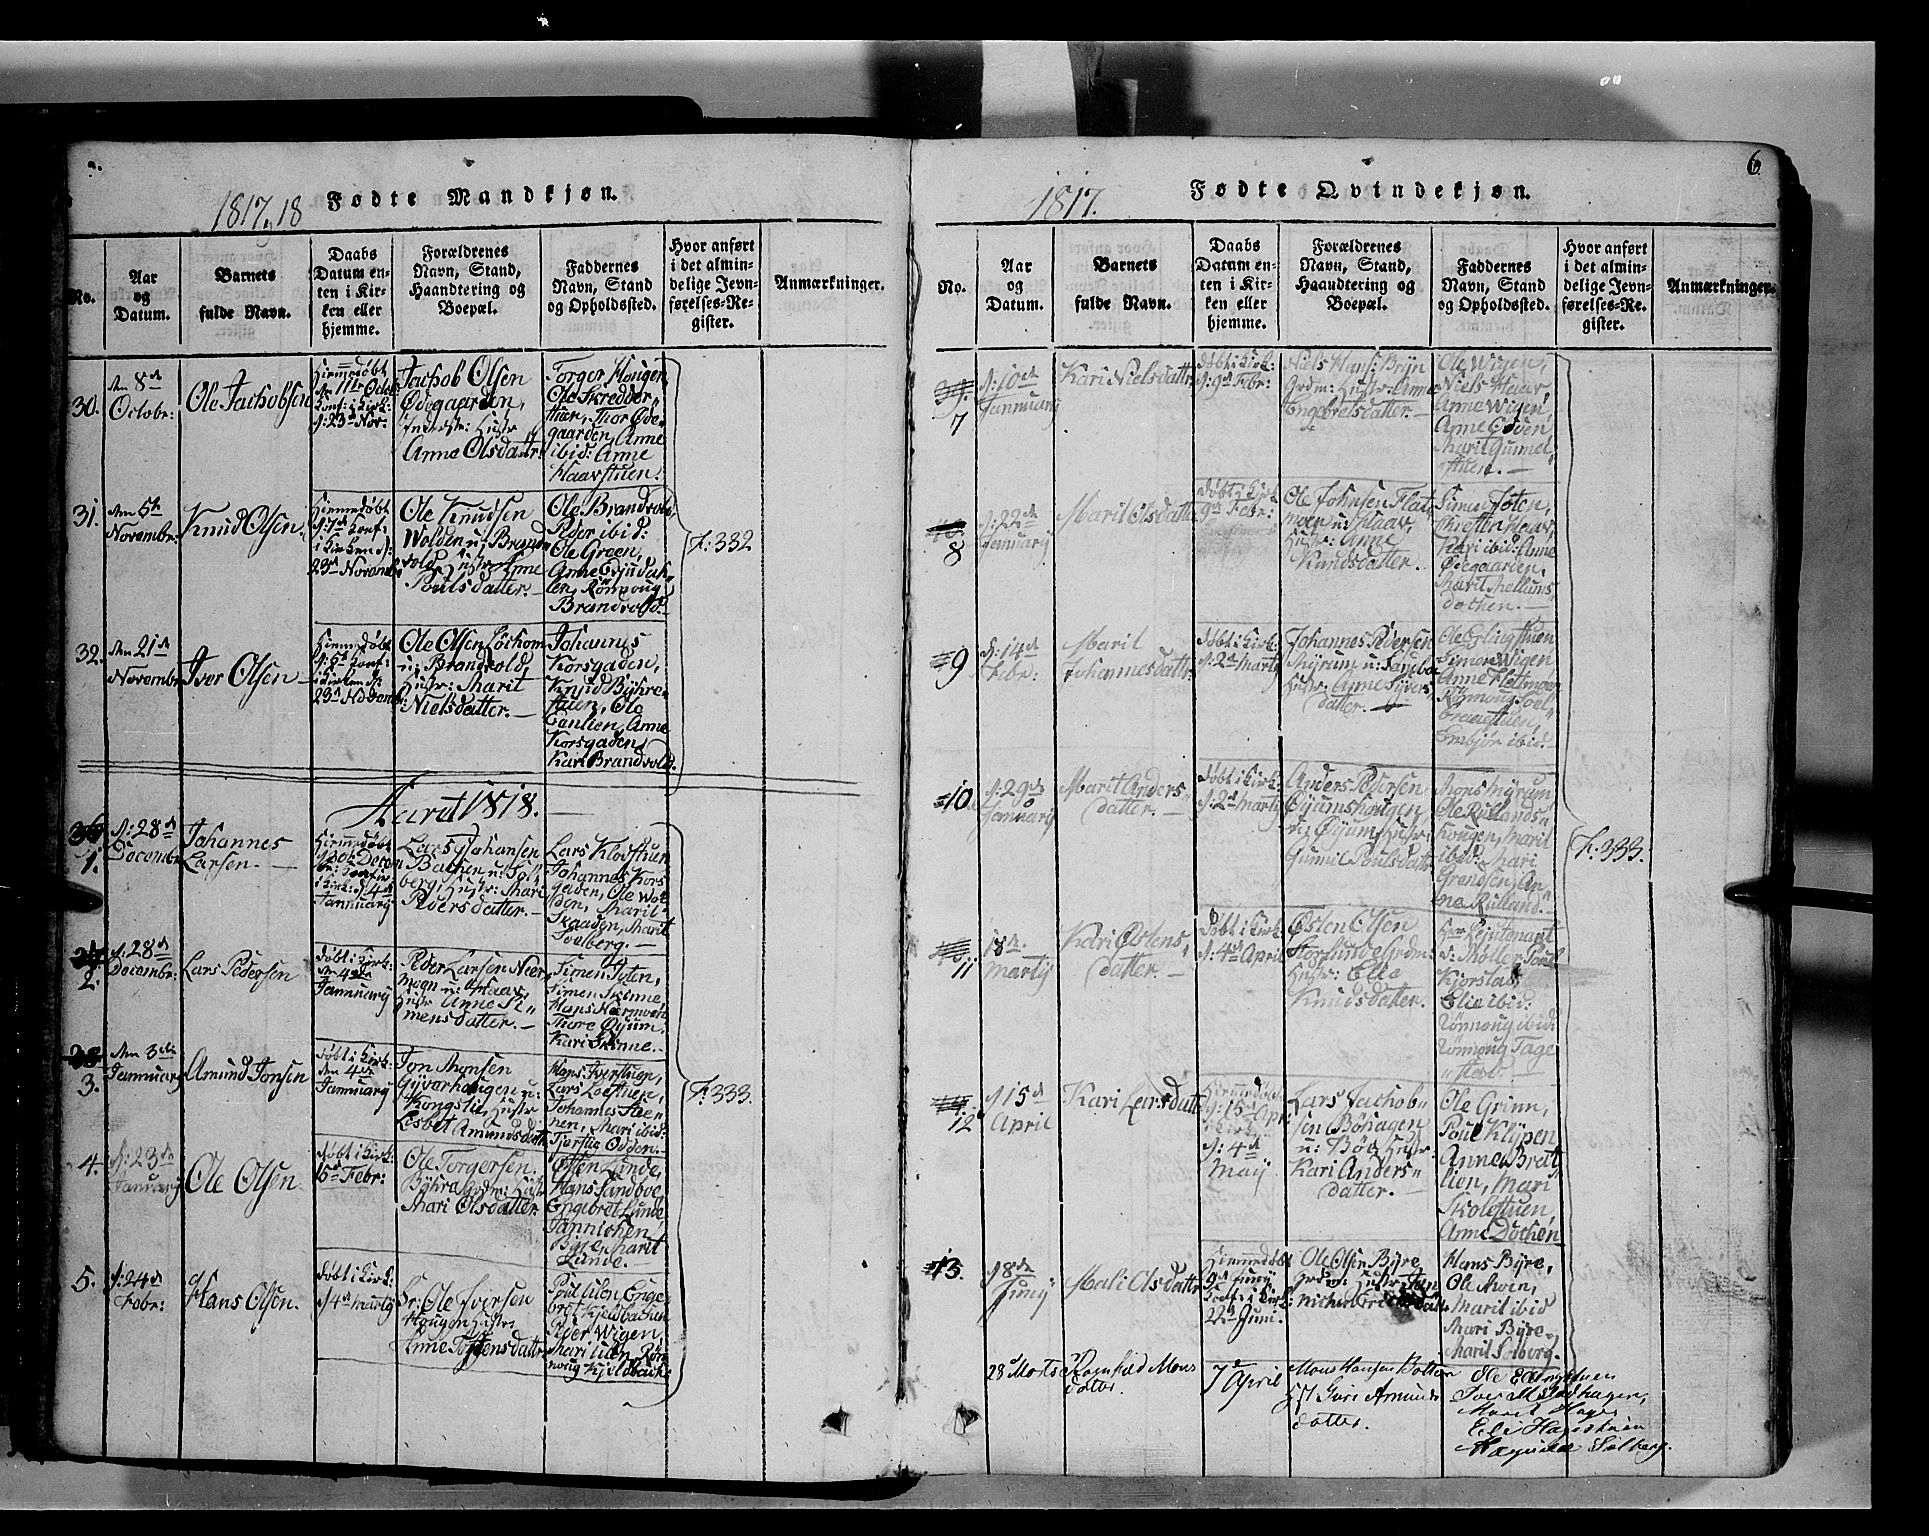 6
1817, 18
Fødte Mandkjøn.
No.
Aar
og
Datum.
Barnets
fulde Navn.
Daabs
Datum en-
ten i Kir-
ken eller
hjemme.
Forældrenes
Navn, Stand,
Haandtering og
Boepæl.
Faddernes
Navn, Stand
og Opholdssted.
Hvor anført
i det almin-
delige Jevn-
førelses-Re-
gister.
Anmærkninger.
30.
8de
Octobr:
Ole Jachobsen
Hiemmedøbt
Jachob Olsen
Ødegaarden,
Anne Olsdattr:
Torger Hougen,
Ole Skredder
stuen, Thor Øde
gaarden, Anne
ibid: Anne
Haavstuen.
31.
Den 5te
Novembr:
Knud Olsen.
Hiemmedøbt
i Kirken
23de Novemb:
Ole Knudsen
Wolden u: Brand
vold, Hustr: Anne
Poulsdatter.
Ole Brandvold,
Peder ibid:
Ole Groen,
Rönnoug
Brandvold.
32.
Den 21de
Novembr
Iver Olsen
Hiemmedøbt
i Kirken
23de Novemb:
Ole Olsen
u: Brandvold
Hustr: Marit
Nielsdatter.
Johannes
Korsgaden,
Knud Byhre
stuen, Ole
Anne
Korsgaden,
Kari Brandvold.
F: 332
Aaret 1818.
1.
d: 28de
Decembr
Johannes
Larsen.
Hiemmedøbt
d: 4de
Jannuary
Lars Johansen
Bachen u: Sol
berg, Hustr: Mari
Pedersdatter.
Lars Klovstuen
Johannes Kors
gaden, Ole Wol
den, Marit
Skaaden, Marit
Solberg.
2.
d: 28de
Decembr:
Lars Pedersen
døbt i Kirk:
den 4de
Jannuary
Peder Larsen Nær
moen u: Haav,
Hustr Anne Si
mensdatter.
Simen Toten,
Simen Skinne,
Hans Nærmoen
Thore Øyum,
Kari Skinne.
3.
Den 3die
Jannuary
Amund Jonsen
døbt i Kirk:
den 4de
Jannuary
Jon Monsen
Gyvorhougen u:
Kongslie, Hustr
Lisbet Amundsdattr
Hans Iverstuen,
Lars Loestuen,
Johannes Stee
nen, Mari ibid:
Odden.
F: 333.
4.
d: 23de
Januari
Ole Olsen
døbt i Kirk:
6te Febr:
Ole Torgersen
Byhre Grdm: Hustr
Mari Olsdatter
Østen Lunde,
Hans Sandboe
Engebret Lunde
Jannichen
Byre, Marit
Lunde.
5.
d: 24de
Febr:
Hans Olsen.
døbt i Kirk:
d 4de Marty
Sr: Ole Iversen
Hougen Hustr:
Anne Tostensdattr
Poul Ulen Enge
bret Kjeldbakken
Peder Wigen,
Mari Ulen, Røn
noug Kjeldbak:
1817.
Fødte Qvindekjøn.
No.
Aar
og
Datum.
Barnets
fulde Navn.
Daabs
Datum en-
ten i Kir-
ken eller
hjemme.
Forældrenes
Navn, Stand,
Haandtering og
Boepæl.
Faddernes
Navn, Stand
og Opholdssted.
Hvor anført
i det almin-
delige Jevn-
førelses-Re-
gister.
Anmærkninger.
7
d: 10de
Jannuary
Kari Nielsdattr
døbt i Kirk:
d: 9de Febr:
Niels Hans: Bryn
Grdm: Hustr: Anne
Engebretsdatter.
Ole Wigen,
Niels Haav,
Anne Wigen,
Anne Odven
Marit Gunnel
stuen.
8
d: 22de
Jannuary
Marit Olsdatter
døbt i Kirk
9de Febr:
Ole Johnsen Flat
moen u: Haav,
Hustr: Anne
Knudsdatter.
Simen Toten,
Haav,
Kari ibid: Anne
Ødegaarden,
Marit Mellums
dochen.
9
d: 14de
Febr:
Marit
Johannesdattr:
døbt i Kirk:
d: 2de Marty
Johannes Pedersen
Myrum u: Sandboe
Hustr: Anne Syvers
datter.
Simen Wigen
Anne Flatmoen
Rönnoug Sol
braastuen,
Embjör ibid.
10
d: 29de
Jannuary
Marit Anders
datter.
døbt i Kirk:
d: 2de Marty
Anders Pedersen
Øyumshougen
u: Øyum, Hustr:
Gunnil Poulsdattr
Mons Myrum
Ole Rullands
hougen, Marit
ibid: Mari
Grandsen, An
ne Rulland.
11
18de
Marty
Kari Østens
datter.
døbt i Kirk:
d: 4de April
Østen Olsen
Storlunde Grdm:
Hustr: Elie
Knudsdatter.
Herr Leutenant
d: Møller Poul
Kjorstad,
Elie ibid:
Rönnoug ibid:
Rönnoug Tage
sted.
12
d 15de
April
Kari Larsdattr
Hiemmedøbt
d: 15de April
d: 4de
May
Lars Jachob
sen Böhagen
u: Böe, Hustr
Kari Anders
datter.
Ole Grinn,
Poul Klypen
Anne Brat
lien, Mari
Skolestuen,
Anne Dochen
F: 333.
13.
d 8de
Juny
Mali Olsdattr
Hiemmedøbt
9de Juny
22de Juni.
Ole Olsen Byre
Grdm: Hustr Jan
nichen
Hans Byre,
Ole Avin,
Marit ibid
Mari Byre,
Marit Solberg.
28 Marts
Ragnhild Mons
datter.
7de April
Mons Hansen Botten
Guri Amunds
datter.
Marit Hage
Eli Hagestuen
Solberg.